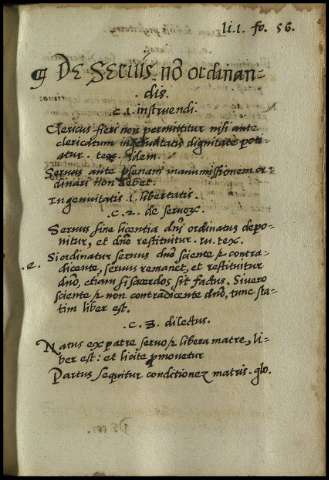 li. 1. fo. 56.
¶ De Seruis nō ordinan-
dis.
.c. 1. instruendi.
Clericus fieri non permittitur nisi ante
clericatum in dignitate pot-
atur. tex. Idem.
Seruus ante plenam manumissionem or-
dinari non debet.
Ingenuitatis .i. libertatis.
.c. 2. de seruoꝝ.
Seruus sine licentia dn̄i ordinatus depo-
nitur, et dn̄o restituitur. tex.
Si ordinatur seruus dn̄o sciente & contra-
.e.
dicente, seruus remanet, et restituitur
dn̄o, etiam si sacerdos sit factus. Si uero
sciente & non contradicente dn̄o, tunc sta-
tim liber est.
.c. 3. dilectus.
Natus ex patre seruo & libera matre, li-
ber est: et licite ꝓmouetur
Partus sequitur conditionez matris. glo.